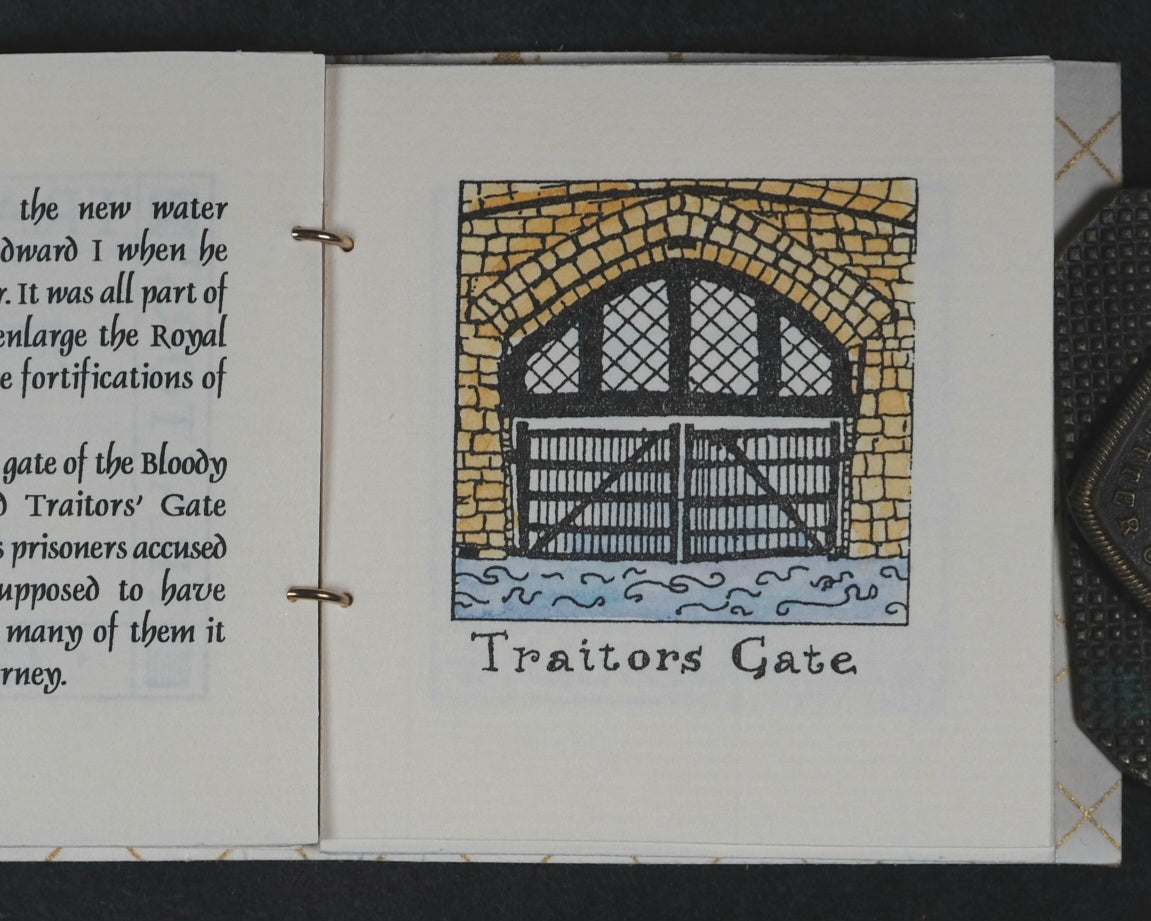 the new water
dward I when he
r. It was all part of
enlarge the Royal
e fortifications of
gate of the Bloody
d Traitors' Gate
s prisoners accused
upposed to have
many of them it
rney.
Traitors Gate
TTER